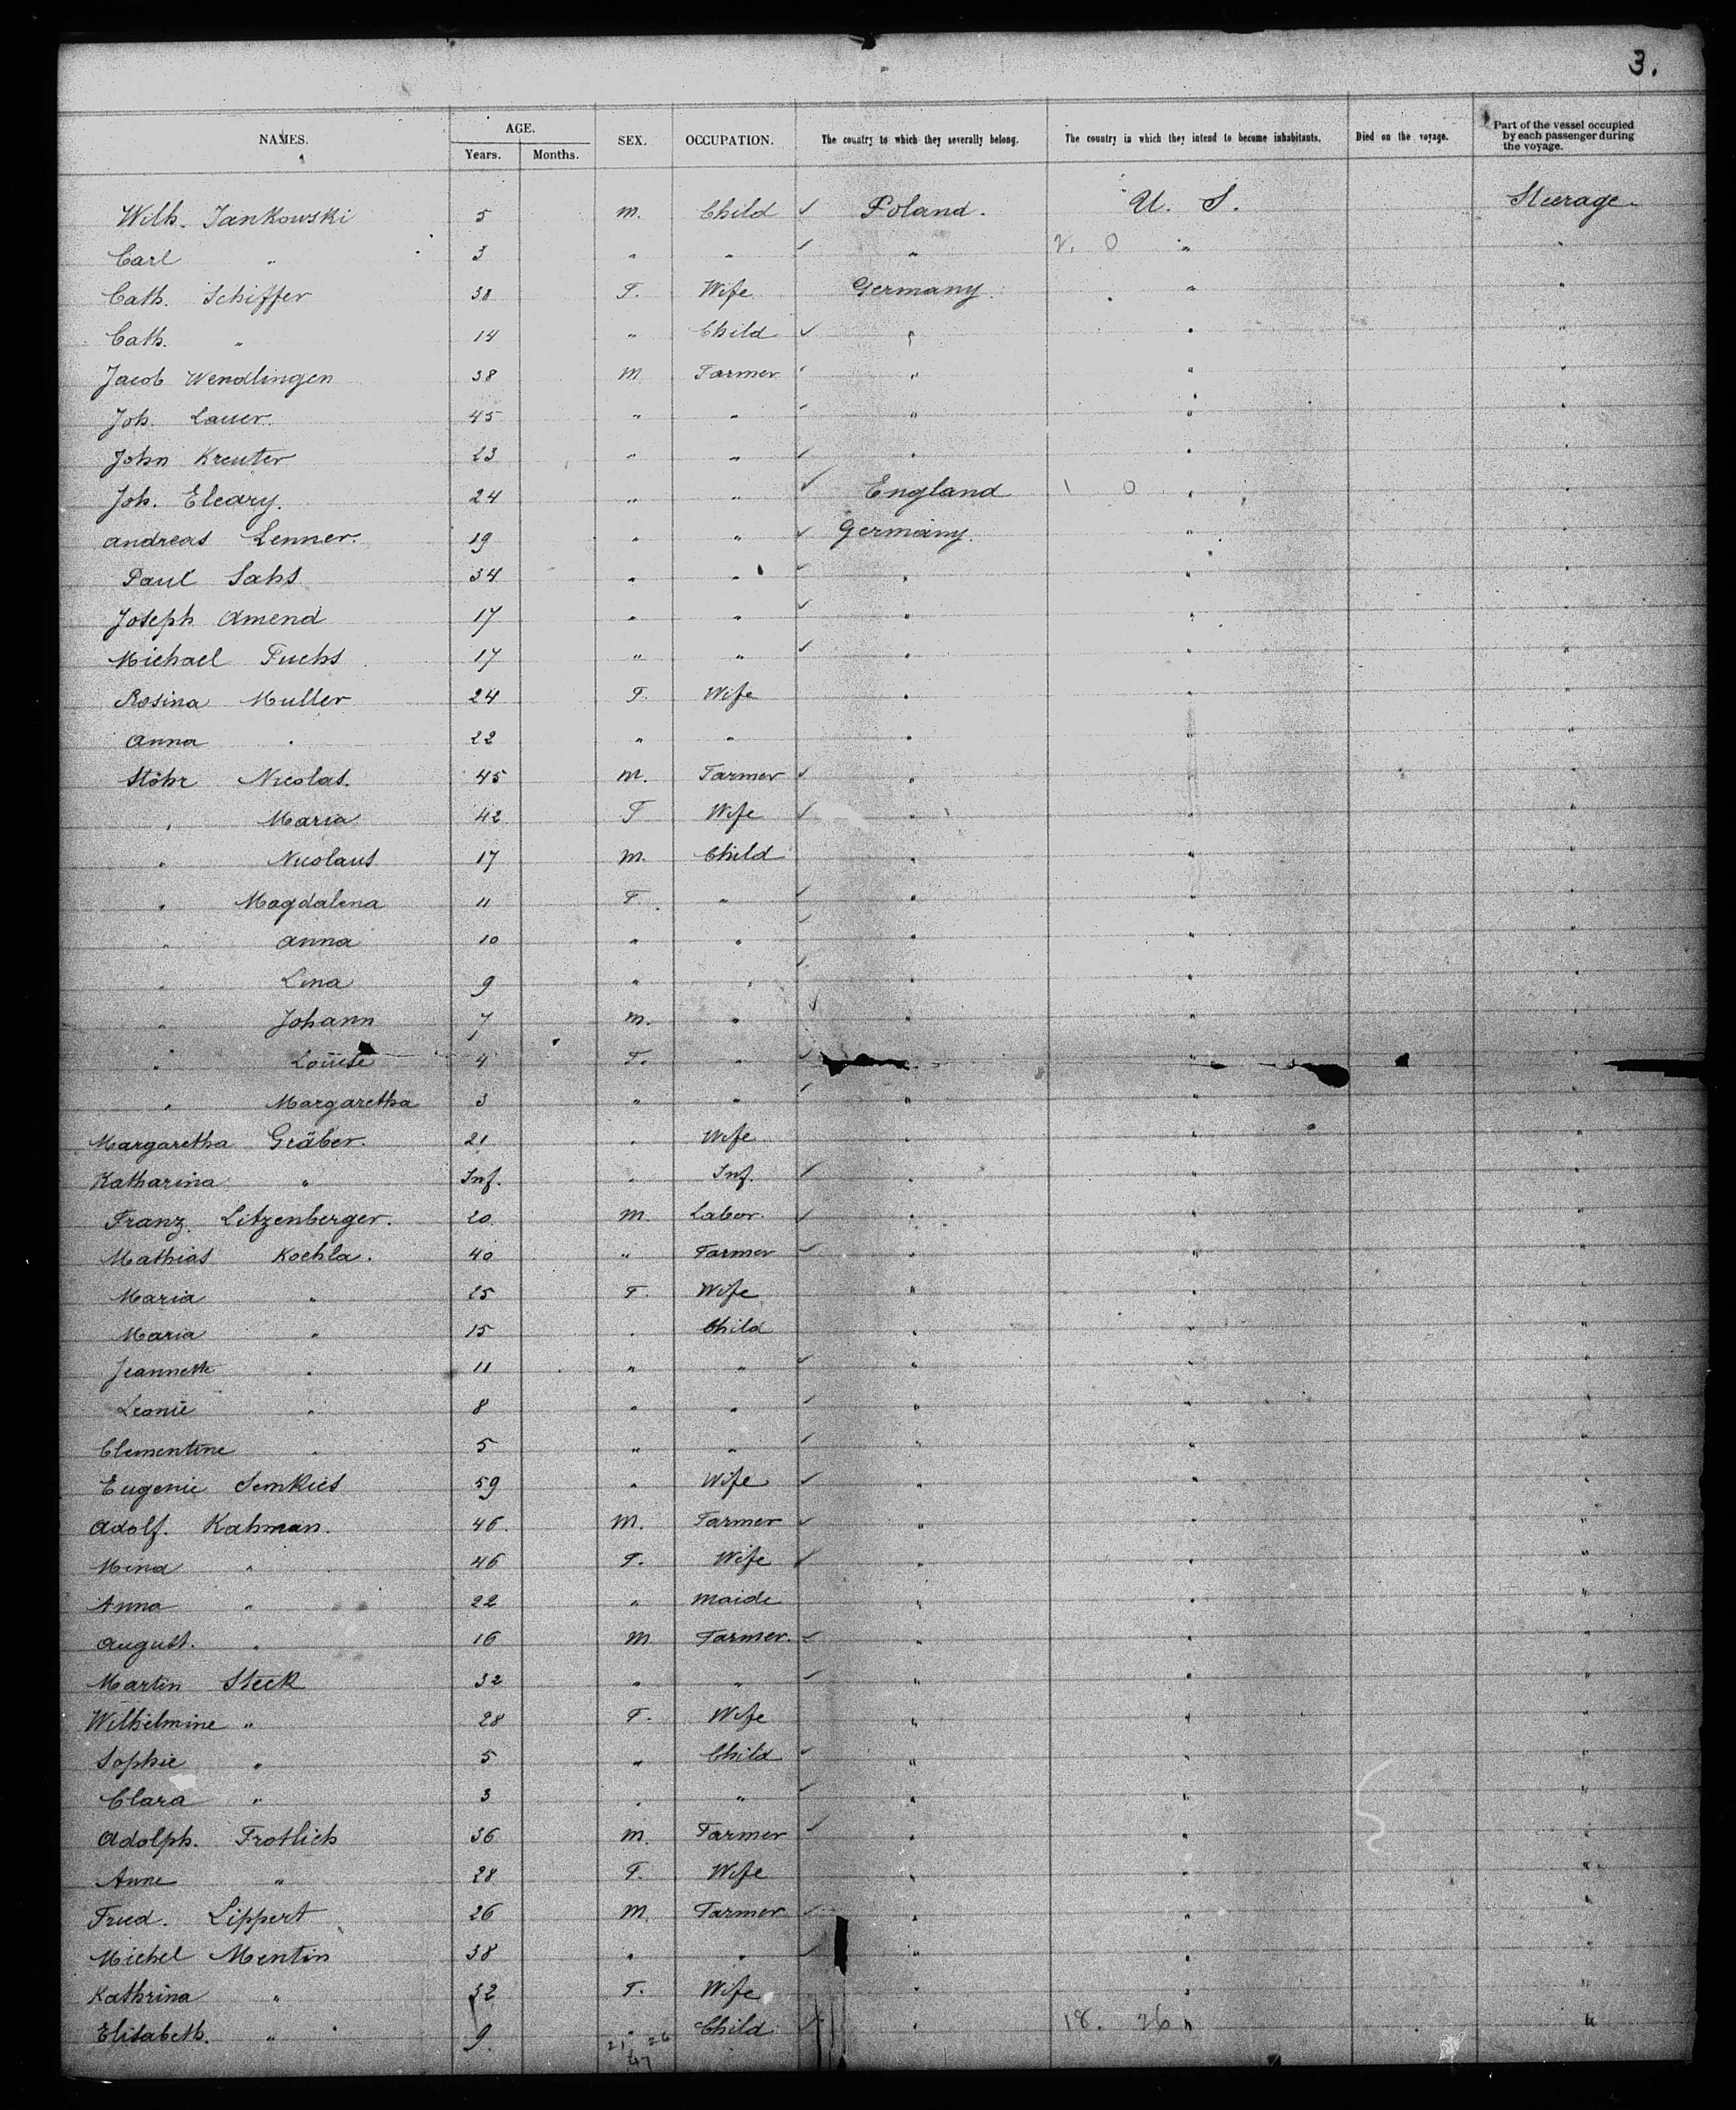 3.
NAMES. AGE. SEX. OCCUPATION. The country to which they severally belong. The country in which they intend to become inhabitants. Died on the voyage. Part of the vessel occupied by each passenger during the voyage.
Years. Months.
Wilh. Jankowski 5 M. Child ✓ Poland. U. S. Steerage.
Carl " 3 " " ✓ " 2. 0 " "
Cath. Schiffer 38 F. Wife Germany. " "
Cath. " 14 " Child ✓ " " "
Jacob Wendlingen 38 M Farmer ✓ " " "
Joh. Lauer. 45 " " ✓ " " "
John Kreuter 23 " " ✓ " " "
Joh. Eleary. 24 " " ✓ England 1 0 " "
Andreas Lenner. 19 " " ✓ Germany. " "
Paul Sahs 34 " " ✓ " " "
Joseph Amend 17 " " ✓ " " "
Michael Fuchs 17 " " ✓ " " "
Rosina Muller 24 F. Wife " " "
Anna " 22 " " " " "
Stöhr Nicolas. 45 M. Farmer ✓ " " "
" Maria 42 F Wife ✓ " " "
" Nicolaus 17 M. Child " " "
" Magdalena 11 F. " ✓ " " "
" Anna 10 " " ✓ " " "
" Lina 9 " " ✓ " " "
" Johann 7 M. " ✓ " " "
" Louise 4 F. " ✓ " " "
" Margaretha 3 " " ✓ " " "
Margaretha Gräber. 21 " Wife " " "
Katharina " Inf. " Inf. ✓ " " "
Franz Litzenberger. 20 M. Labor. ✓ " " "
Mathias Koehla. 40 " Farmer ✓ " " "
Maria " 25 F. Wife " " "
Maria " 15 " Child " " "
Jeannette " 11 " " ✓ " " "
Leonie " 8 " " ✓ " " "
Clementine " 5 " " ✓ " " "
Eugenie Semkies 59 " Wife ✓ " " "
Adolf. Kahman. 46. M. Farmer ✓ " " "
Mina " 46 F. Wife ✓ " " "
Anna " 22 " Maide " " "
August. " 16 M Farmer. ✓ " " "
Martin Steck 32 " " ✓ " " "
Wilhelmine " 28 F. Wife " " "
Sophie " 5 " Child ✓ " " "
Clara " 3 " " ✓ " " "
Adolph. Frotlich 36 M. Farmer ✓ " " "
Anne " 28 F. Wife " " "
Fried. Lippert 26 M. Farmer ✓ " " "
Michel Mentin 38 " " ✓ " " "
Kathrina " 32 F. Wife " " "
Elisabeth. " 9. " Child ✓ " 18. 26 " "
21 26
47